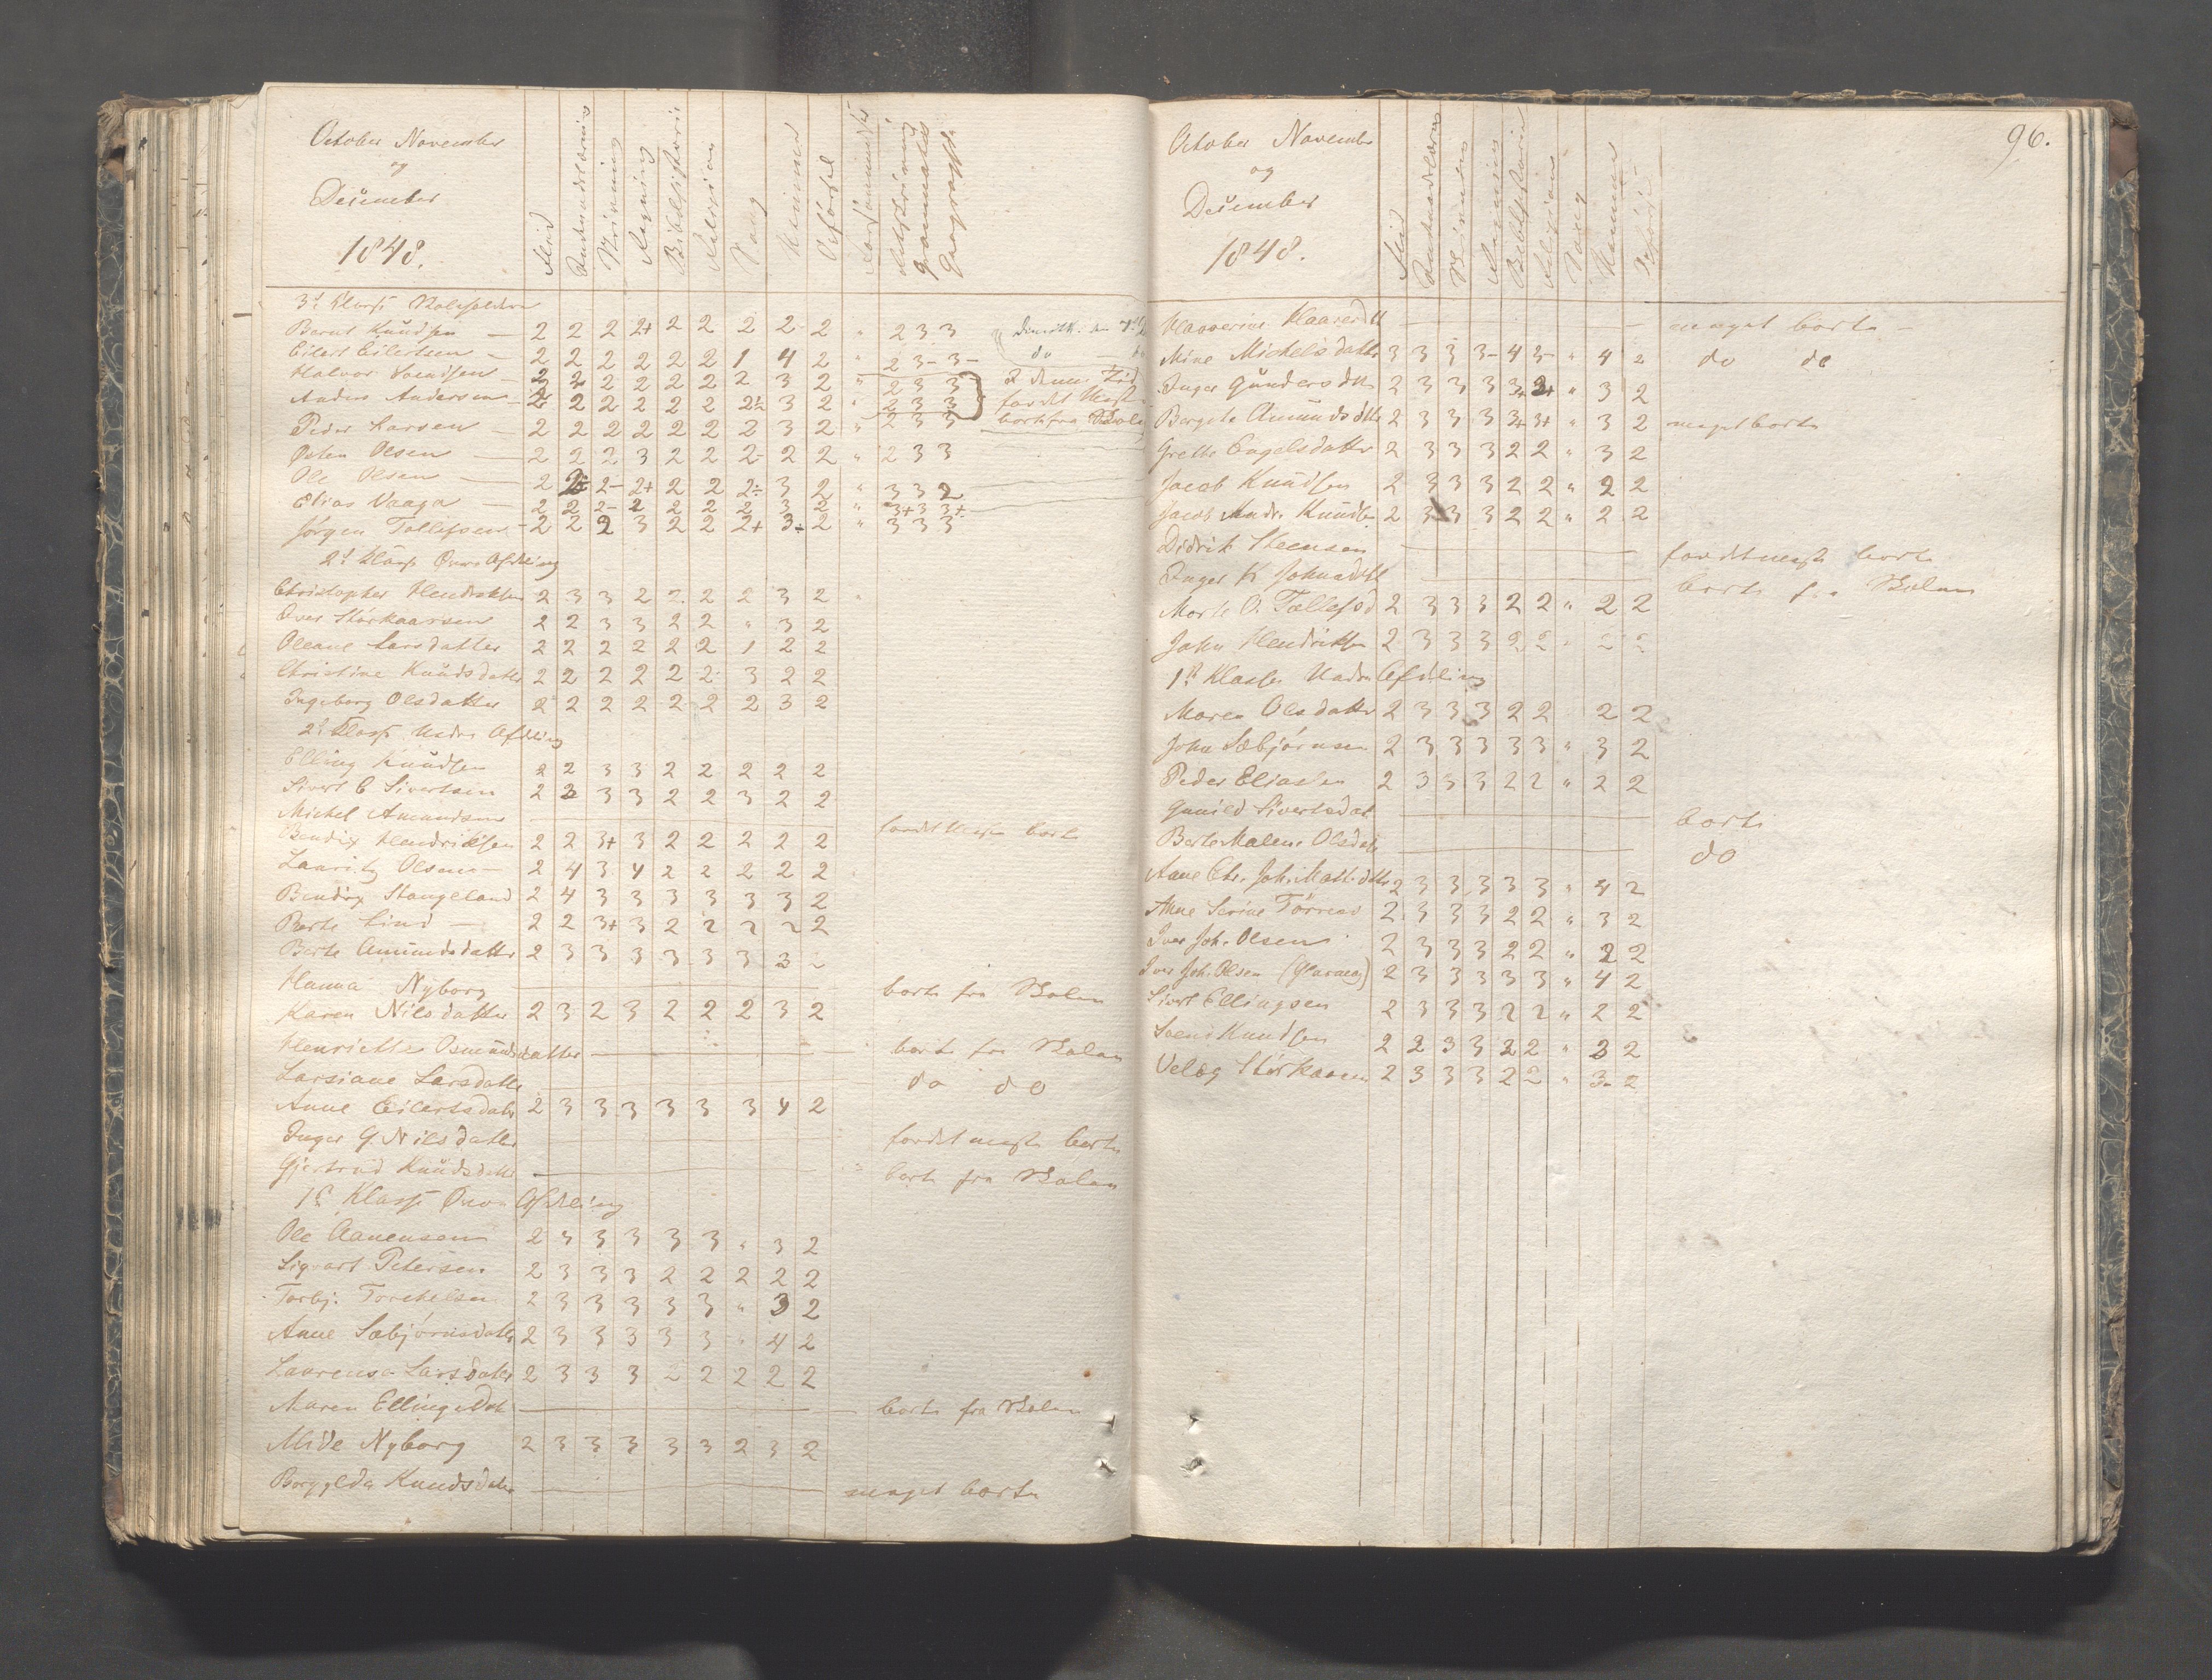 October November
og
December
1848.
Flid
Indenadlæsning
Skrivning
Regning
Bibelhistorie
Religion
Sang
Hukommelse
Opførsel
Retskrivning
Grammatik
Geografie
3die Klasse
Bernt Knudsen — 2 2 2 2+ 2 2 2 2 2 " 2 3 3
Eilert Eilertsen — 2 2 2 2 2 2 1 4 2 " 2 3- 3- do
Halvor Svendsen — 2 2 2 2 2 2 2 3 2 " 2 3 3
Anders Andersen — 2 2 2 2 2 2 2÷ 3 2 " 2 3 3
Peder Larsen — 2 2 2 2 2 2 2 3 2 " 2 3 3 bort fra Skolen
Østen Olsen — 2 2 2 3 2 2 2- 2 2 " 2 3 3
Ole Olsen — 2 2÷ 2- 2+ 2 2 2÷ 3 2 " 3 3 2
Elias Vaaga — 2 2 2- 2 2 2 2 3 2 " 3+ 3 3+
Jørgen Tollefsen — 2 2 2 3 2 2 2+ 3- 2 " 3 3 3
2d Klasse Øvre Afdeling
Christopher Hendriksen 2 3 3 2 2 2 2 3 2 "
Over Storkaarsen 2 2 3 3 2 2 " 3 2
Oleane Larsdatter 2 2 2 2 2 2 1 2 2
Christine Knudsdatter 2 2 2 2 2 2 3 2 2
Ingeborg Olsdatter 2 2 2 2 2 2 2 3 2
2d Klasse Nedre Afdeling
Elling Knudsen 2 2 3 3 2 2 2 2 2
Sivert C Sivertsen 2 2 3 3 2 2 3 2 2
Michel Amundsen — fordet meste borte
Bendix Hendriksen 2 2 3+ 3 2 2 2 2 2
Lauritz Olsen — 2 4 3 4 2 2 2 2 2
Bendix Stangeland 2 4 3 3 3 3 3 3 2
Berte Lind — 2 2 3+ 3 2 2 2 2 2
Berte Amundsdatter 2 3 3 3 3 3 3 3 2
Hanna Nyborg — borte fra Skolen
Karen Nilsdatter 2 3 2 3 2 2 2 3 2
Henriette Osmundsdatter — borte fra Skolen
Larsiane Larsdatter — do do
Anne Eilertsdatter 2 3 3 3 3 3 3 4 2
Inger G. Nilsdatter — fordet meste borte
Gjertrud Knudsdatter — borte fra Skolen
1st Klasse Øvre Afdeling
Ole Aanensen 2 4 3 3 3 3 " 3 2
Sigvart Petersen 2 3 3 3 2 2 2 2 2
Torbj. Torchelsen 2 3 3 3 3 3 " 3 2
Anne Sæbjørnsdatter 2 3 3 3 3 3 " 4 2
Laurensa Larsdatter 2 3 3 3 2 2 2 2 2
Maren Ellingsdat — borte fra Skolen
Mide Nyborg 2 3 3 3 3 3 2 3 2
Borggilda Knudsdatter — meget borte
96.
October November
og
December
1848.
Flid
Indenadlæsning
Skrivning
Regning
Bibelhistorie
Religion
Sang
Opførsel
— meget borte —
Mine Michelsdatter 3 3 3 3- 4 3- " 4 2 do do
Inger Gundersdtt 2 3 3 3 3+ 2+ " 3 2
Bergete Amundsdtt 2 3 3 3 3+ 3+ " 3 2 meget borte
Grethe Engelsdatter 2 3 3 3 2 2 " 3 2
Jacob Knudsen 2 3 3 3 2 2 " 2 2
Jacob Andr. Knudsen 2 3 3 3 2 2 " 2 2
Didrik Steensen — fordetmeste borte
Inger K Johnsdtt — borte fra Skolen
Marte O. Tollefsd 2 3 3 3 2 2 " 2 2
John Hendriksen 2 3 3 3 2 2 " 2 2
1st Klasse Nedre Afdeling
Maren Olsdatter 2 3 3 3 2 2 2 2
John Sæbjørnsen 2 3 3 3 3 3 " 3 2
Peder Eliassen 2 3 3 3 2 2 " 2 2
Gunild Sivertsdat — borte
Berte Malene Olsdatt — do
Anne Chr. Joh. Matt.dtt 2 3 3 3 3 3 " 4 2
Anne Serine Tørres 2 3 3 3 2 2 " 3 2
Iver Joh. Olsen 2 3 3 3 2 2 " 2 2
Iver Joh. Olsen 2 3 3 3 3 3 " 4 2
Sivert Ellingsen 2 3 3 3 2 2 " 2 2
Svend Knudsen 2 2 3 3 2 2 " 3 2
Velæg Storkaarsen 2 3 3 3 2 2 " 3- 2